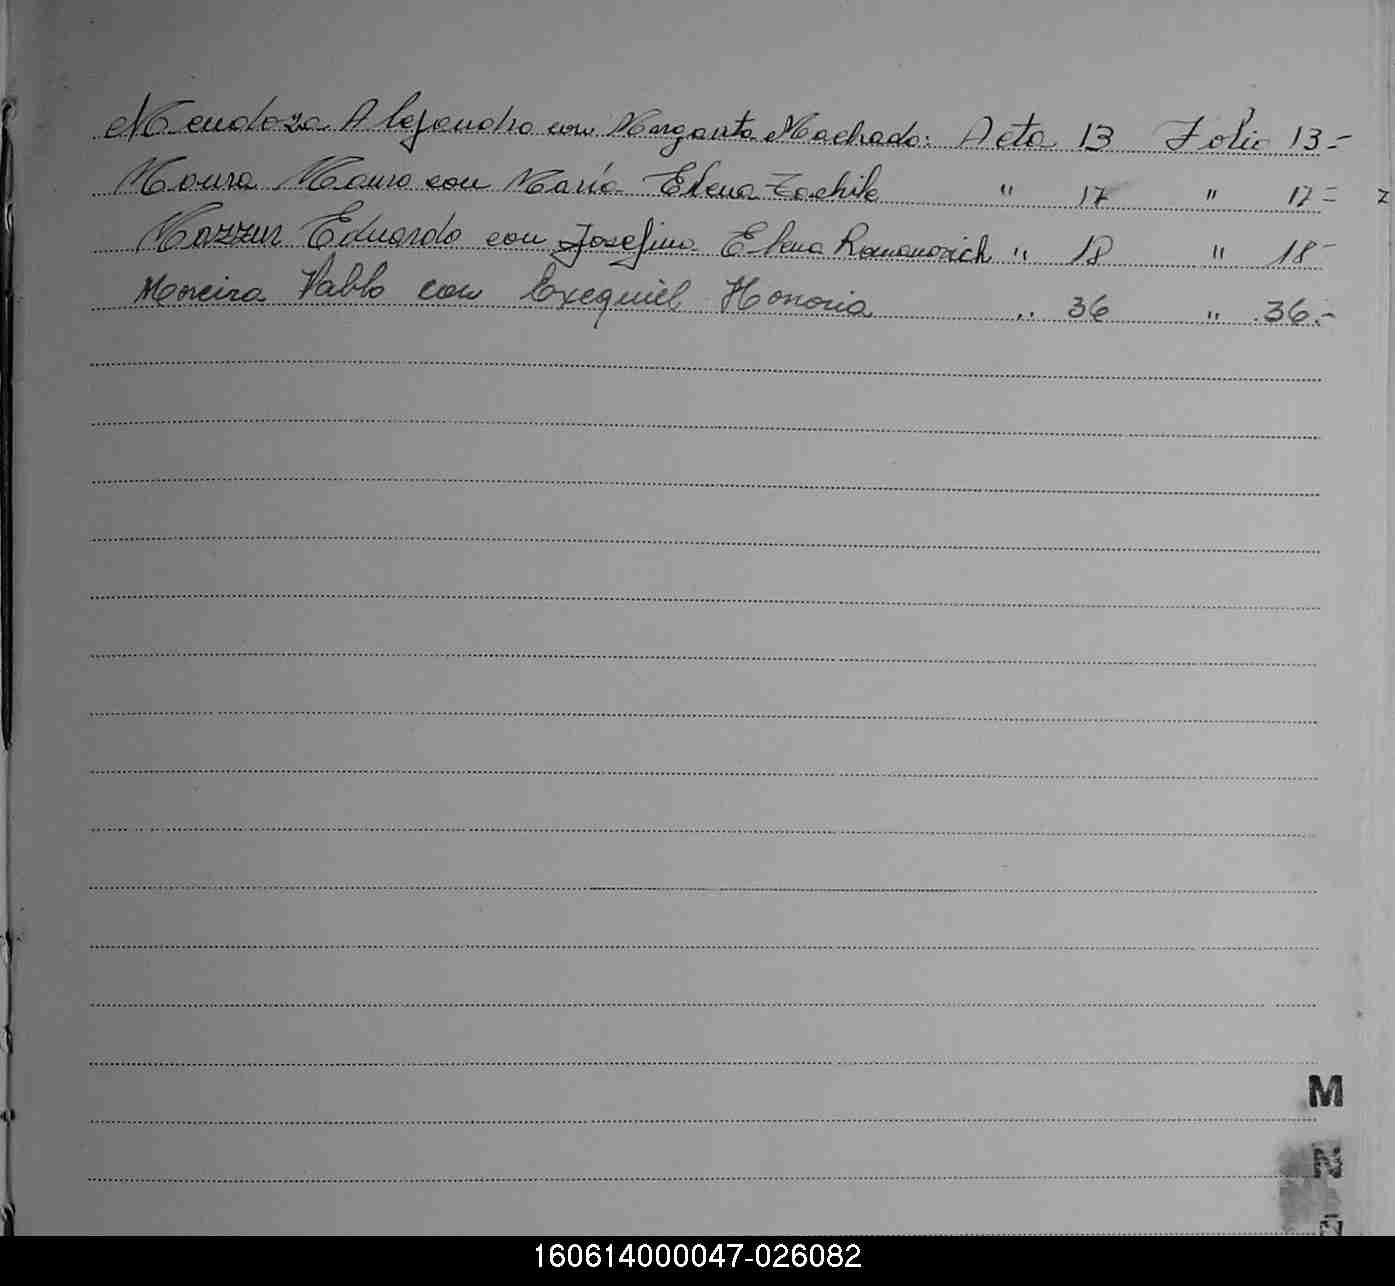 Mendoza Alejandro con Margarita Machado: Acta 13 Folio 13-
Moura Mauro con María Elena " 17 " 17=
Mazzur Eduardo con Josefina Elena Romanovich " 18 " 18-
Moreira Pablo con Exequiel Honoria " 36 " 36.-
M
N
Ñ
160614000047-026082